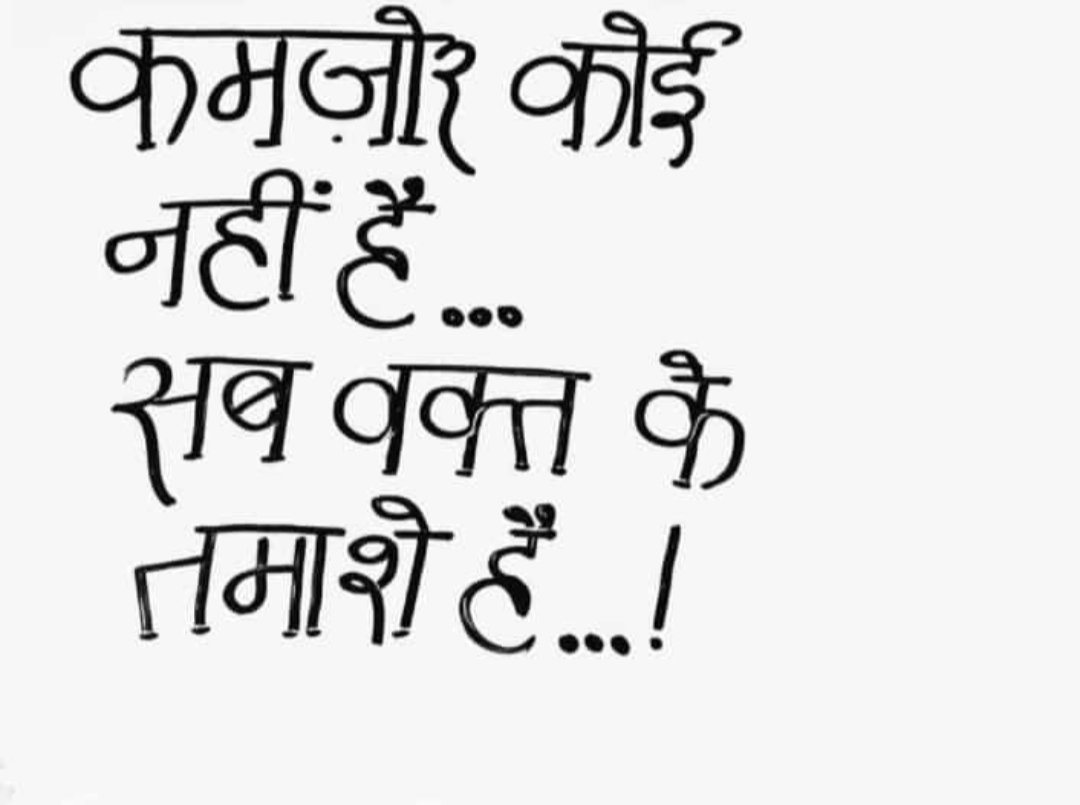 कमज़ोर कोई
नहीं है...
सब वक्त के
तमाशे हैं...!